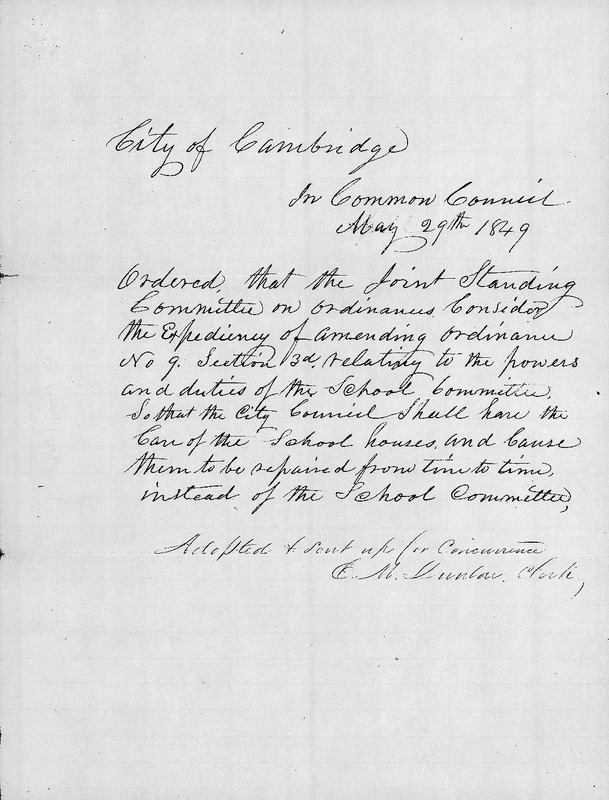 City of Cambridge
In Common Council
May 29th 1849
Ordered, that the Joint Standing
Committee on Ordinances Consider
the Expediency of amending Ordinance
No 9. Section 3d. relating to the powers
and duties of the School Committee,
So that the City Council Shall have the
Care of the School houses, and Cause
them to be repaired from time to time,
instead of the School Committee,
Adopted & sent up for Concurrence
E. M. Dunbar. Clerk,